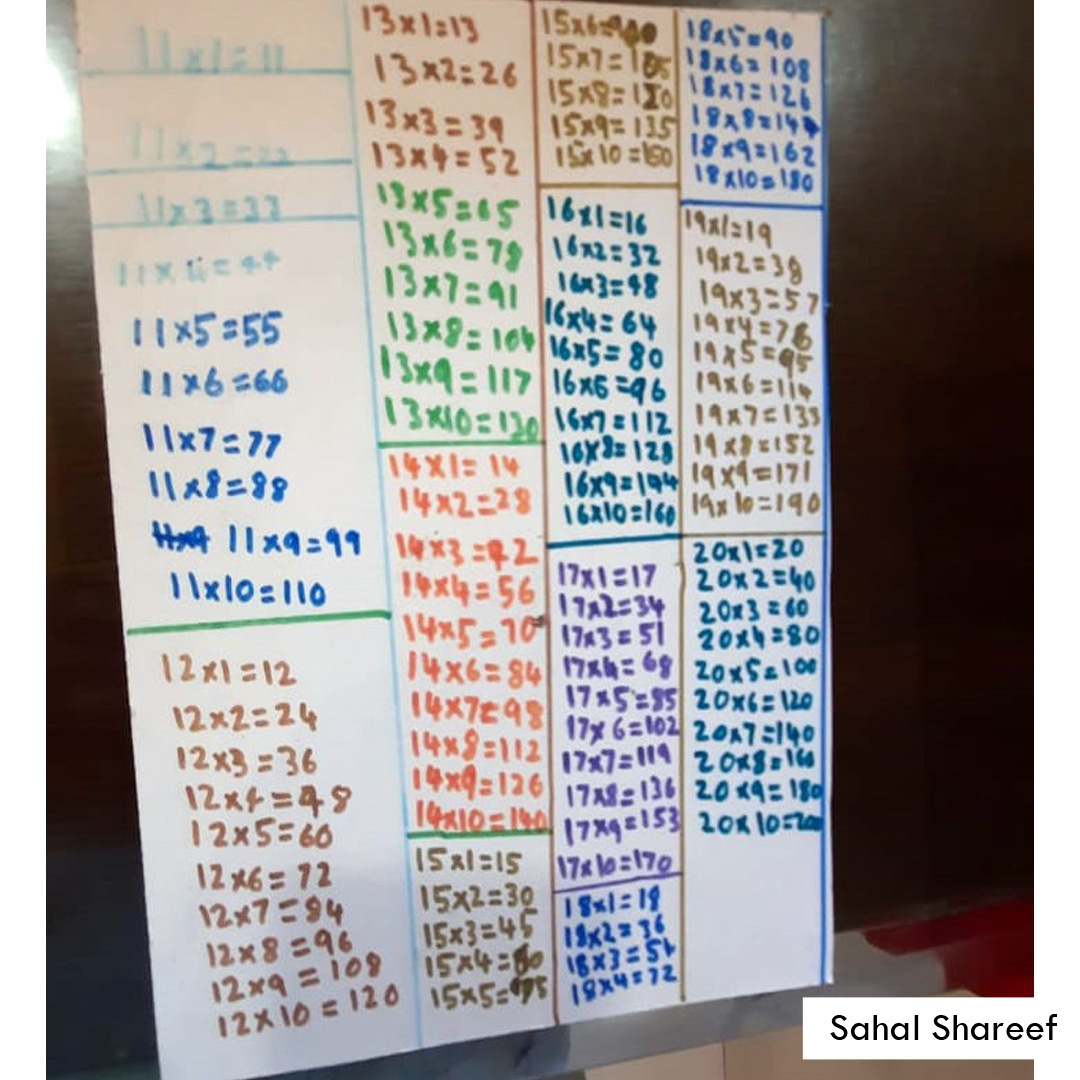 11x1=11
11x2=22
11x3=33
11x4=44
11x5=55
11x6=66
11x7=77
11x8=88
11x9 11x9=99
11x10=110
12x1=12
12x2=24
12x3=36
12x4=48
12x5=60
12x6=72
12x7=84
12x8=96
12x9=108
12x10=120
13x1=13
13x2=26
13x3=39
13x4=52
13x5=65
13x6=78
13x7=91
13x8=104
13x9=117
13x10=130
14x1=14
14x2=28
14x3=42
14x4=56
14x5=70
14x6=84
14x7=98
14x8=112
14x9=126
14x10=140
15x1=15
15x2=30
15x3=45
15x4=60
15x5=75
15x6=
15x7=105
15x8=120
15x9=135
15x10=150
16x1=16
16x2=32
16x3=48
16x4=64
16x5=80
16x6=96
16x7=112
16x8=128
16x9=144
16x10=160
17x1=17
17x2=34
17x3=51
17x4=68
17x5=85
17x6=102
17x7=119
17x8=136
17x9=153
17x10=170
18x1=18
18x2=36
18x3=54
18x4=72
18x5=90
18x6=108
18x7=126
18x8=144
18x9=162
18x10=180
19x1=19
19x2=38
19x3=57
19x4=76
19x5=95
19x6=114
19x7=133
19x8=152
19x9=171
19x10=190
20x1=20
20x2=40
20x3=60
20x4=80
20x5=100
20x6=120
20x7=140
20x8=160
20x9=180
20x10=200
Sahal Shareef